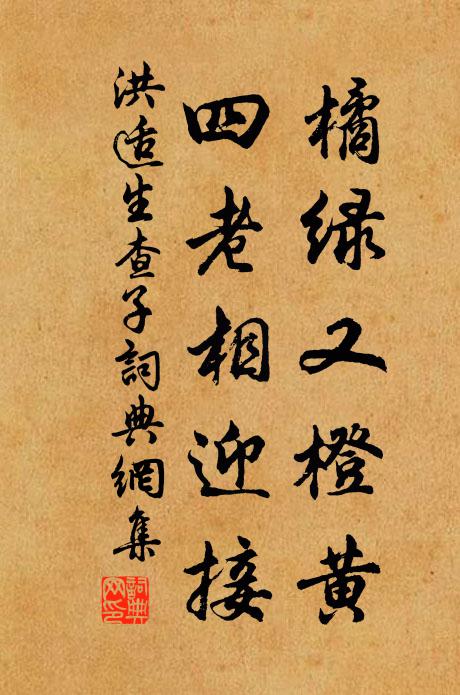 橘绿又橙黄
四老相迎接
洪适生查子詞典網集
詞典
网印